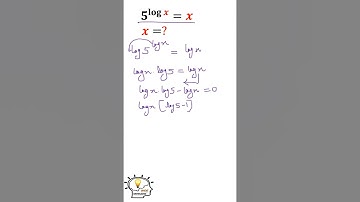 5^{log x} = x
x = ?
log 5^{log x} = log x
log x . log 5 = log x
log x . log 5 - log x = 0
log x [log 5 - 1]